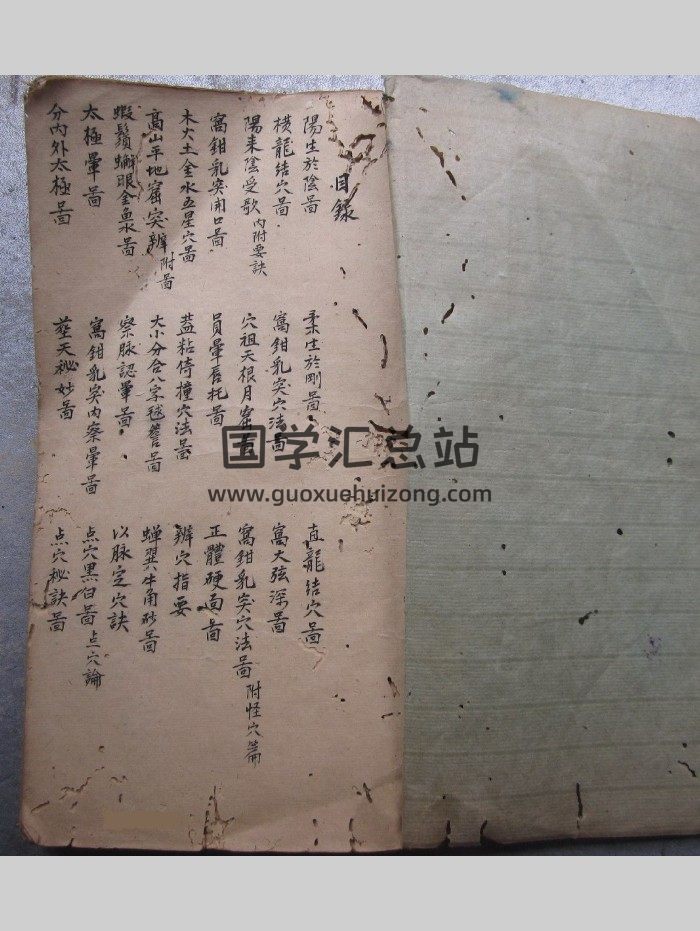 目錄
陽生於陰啚 柔生於剛啚 直龍結穴啚
橫龍結穴啚 窩鉗乳突穴法啚 窩大弦深啚
陽來陰受歌 內附要訣 穴祖天根月窟啚 窩鉗乳突穴法啚 附怪穴篇
窩鉗乳突開口啚 員暈唇托啚 正體硬面啚
木火土金水五星穴啚 蓋粘倚撞穴法啚 辨穴指要
高山平地窟突辨 附啚 大小分合八字毬簷啚 蟬翼牛角砂啚
蝦鬚蠏眼金魚水啚 察脉認暈啚 以脉定穴訣
太極暈啚 窩鉗乳突內察暈啚 点穴黑白啚 点穴論
分內外太極啚 天祕妙啚 点穴祕訣啚
国学汇总站
www.guoxuehuizong.com